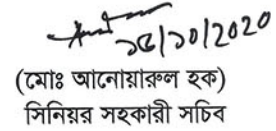 ১৫/১০/2020
(মোঃ আনোয়ারুল হক)
সিনিয়র সহকারী সচিব